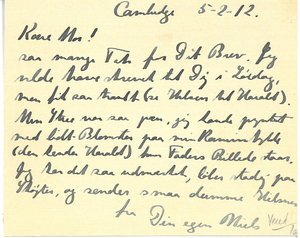 Cambridge 5-2-12.
Kære Mor!
saa mange Tak for Dit Brev. Jeg
vilde have skrevet til Dig i Lördag,
men fik saa travlt (se Hilsen til Harald).
Min Stue var saa pæn, jeg havde pyntet
med lidt Blomster paa min Kaminhylde
(den kender Harald) hvor Faders Billede staar.
Jeg har det saa udmærket, liber stadig paa
Skøjter, og sender smaa dumme Hilsner
fra Din egen Niels